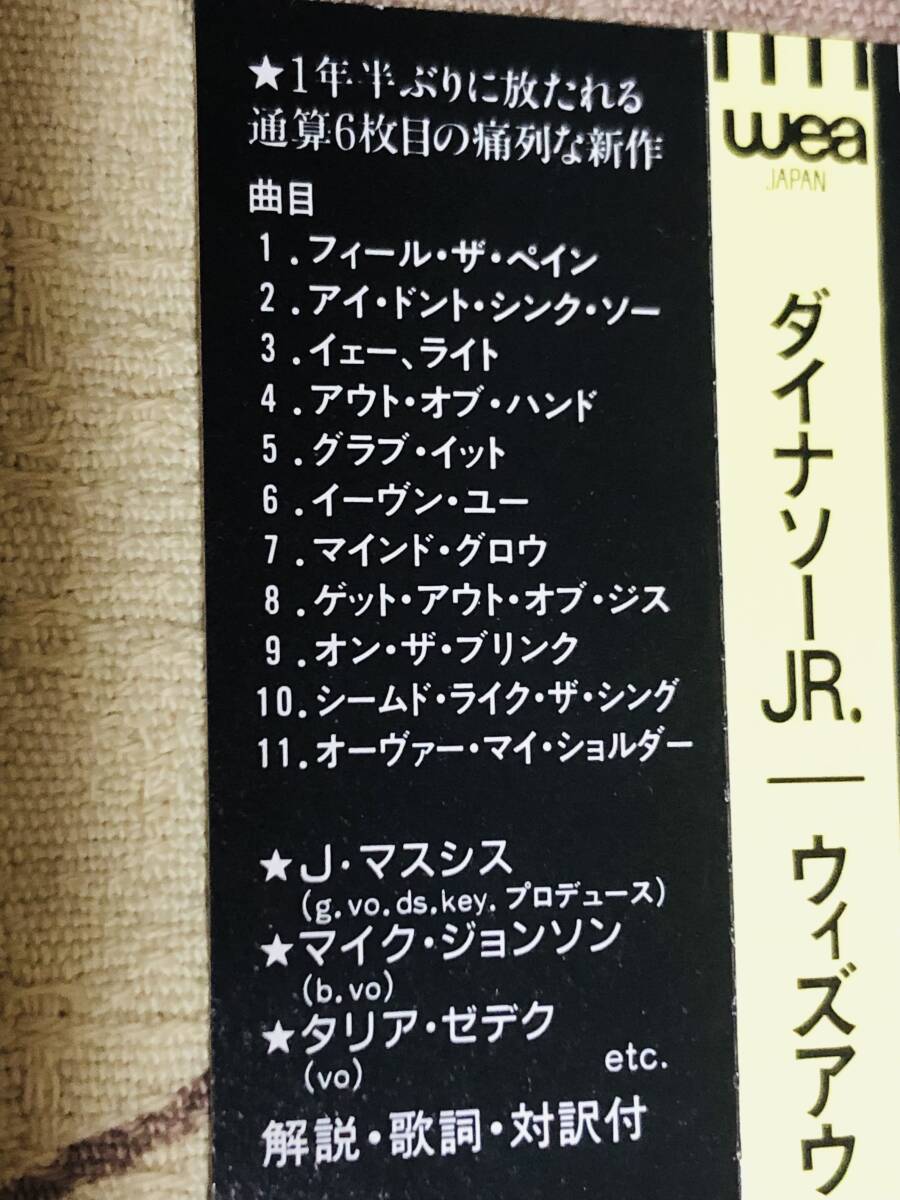 ★1年半ぶりに放たれる
通算6枚目の痛列な新作
曲目
1.フィール・ザ・ペイン
2.アイ・ドント・シンク・ソー
3.イェー、ライト
4.アウト・オブ・ハンド
5.グラブ・イット
6.イーヴン・ユー
7.マインド・グロウ
8.ゲット・アウト・オブ・ジス
9.オン・ザ・ブリンク
10.シームド・ライク・ザ・シング
11.オーヴァー・マイ・ショルダー
★J・マスシス
(g.vo.ds.key.プロデュース)
★マイク・ジョンソン
(b.vo)
★タリア・ゼデク
(vo)
etc.
解説・歌詞・対訳付
wea
JAPAN
ダイナソーJR.｜ウィズアウ